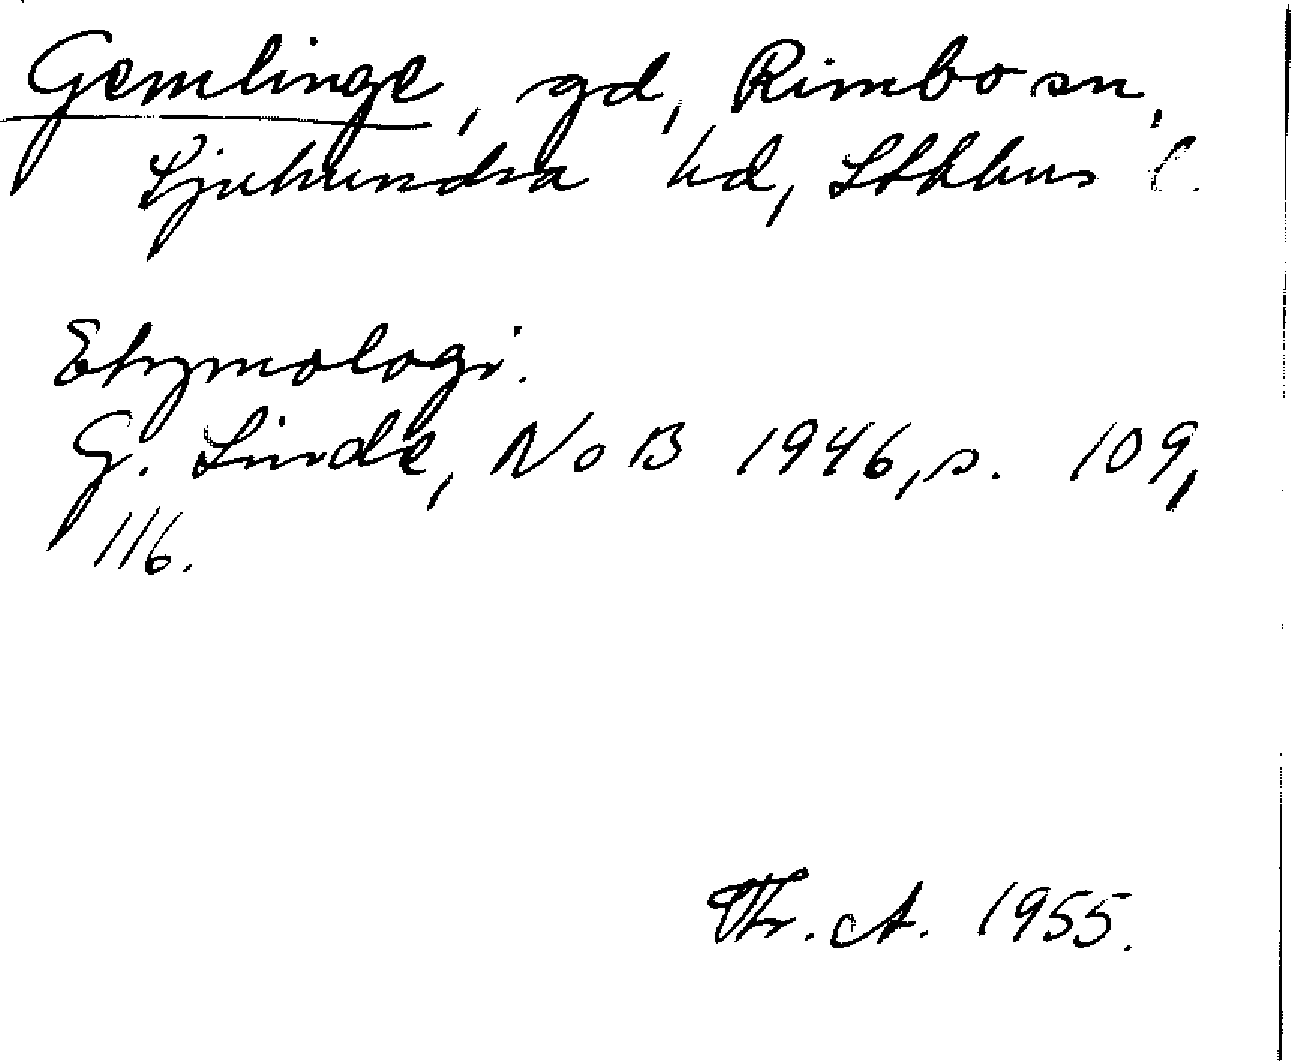 Gemlinge, gd, Rimbo sn,
Sjuhundra hd, Sthhms l.
Etymologi.
G. Linde, NoB 1946, s. 109,
116.
Th. A. 1955.